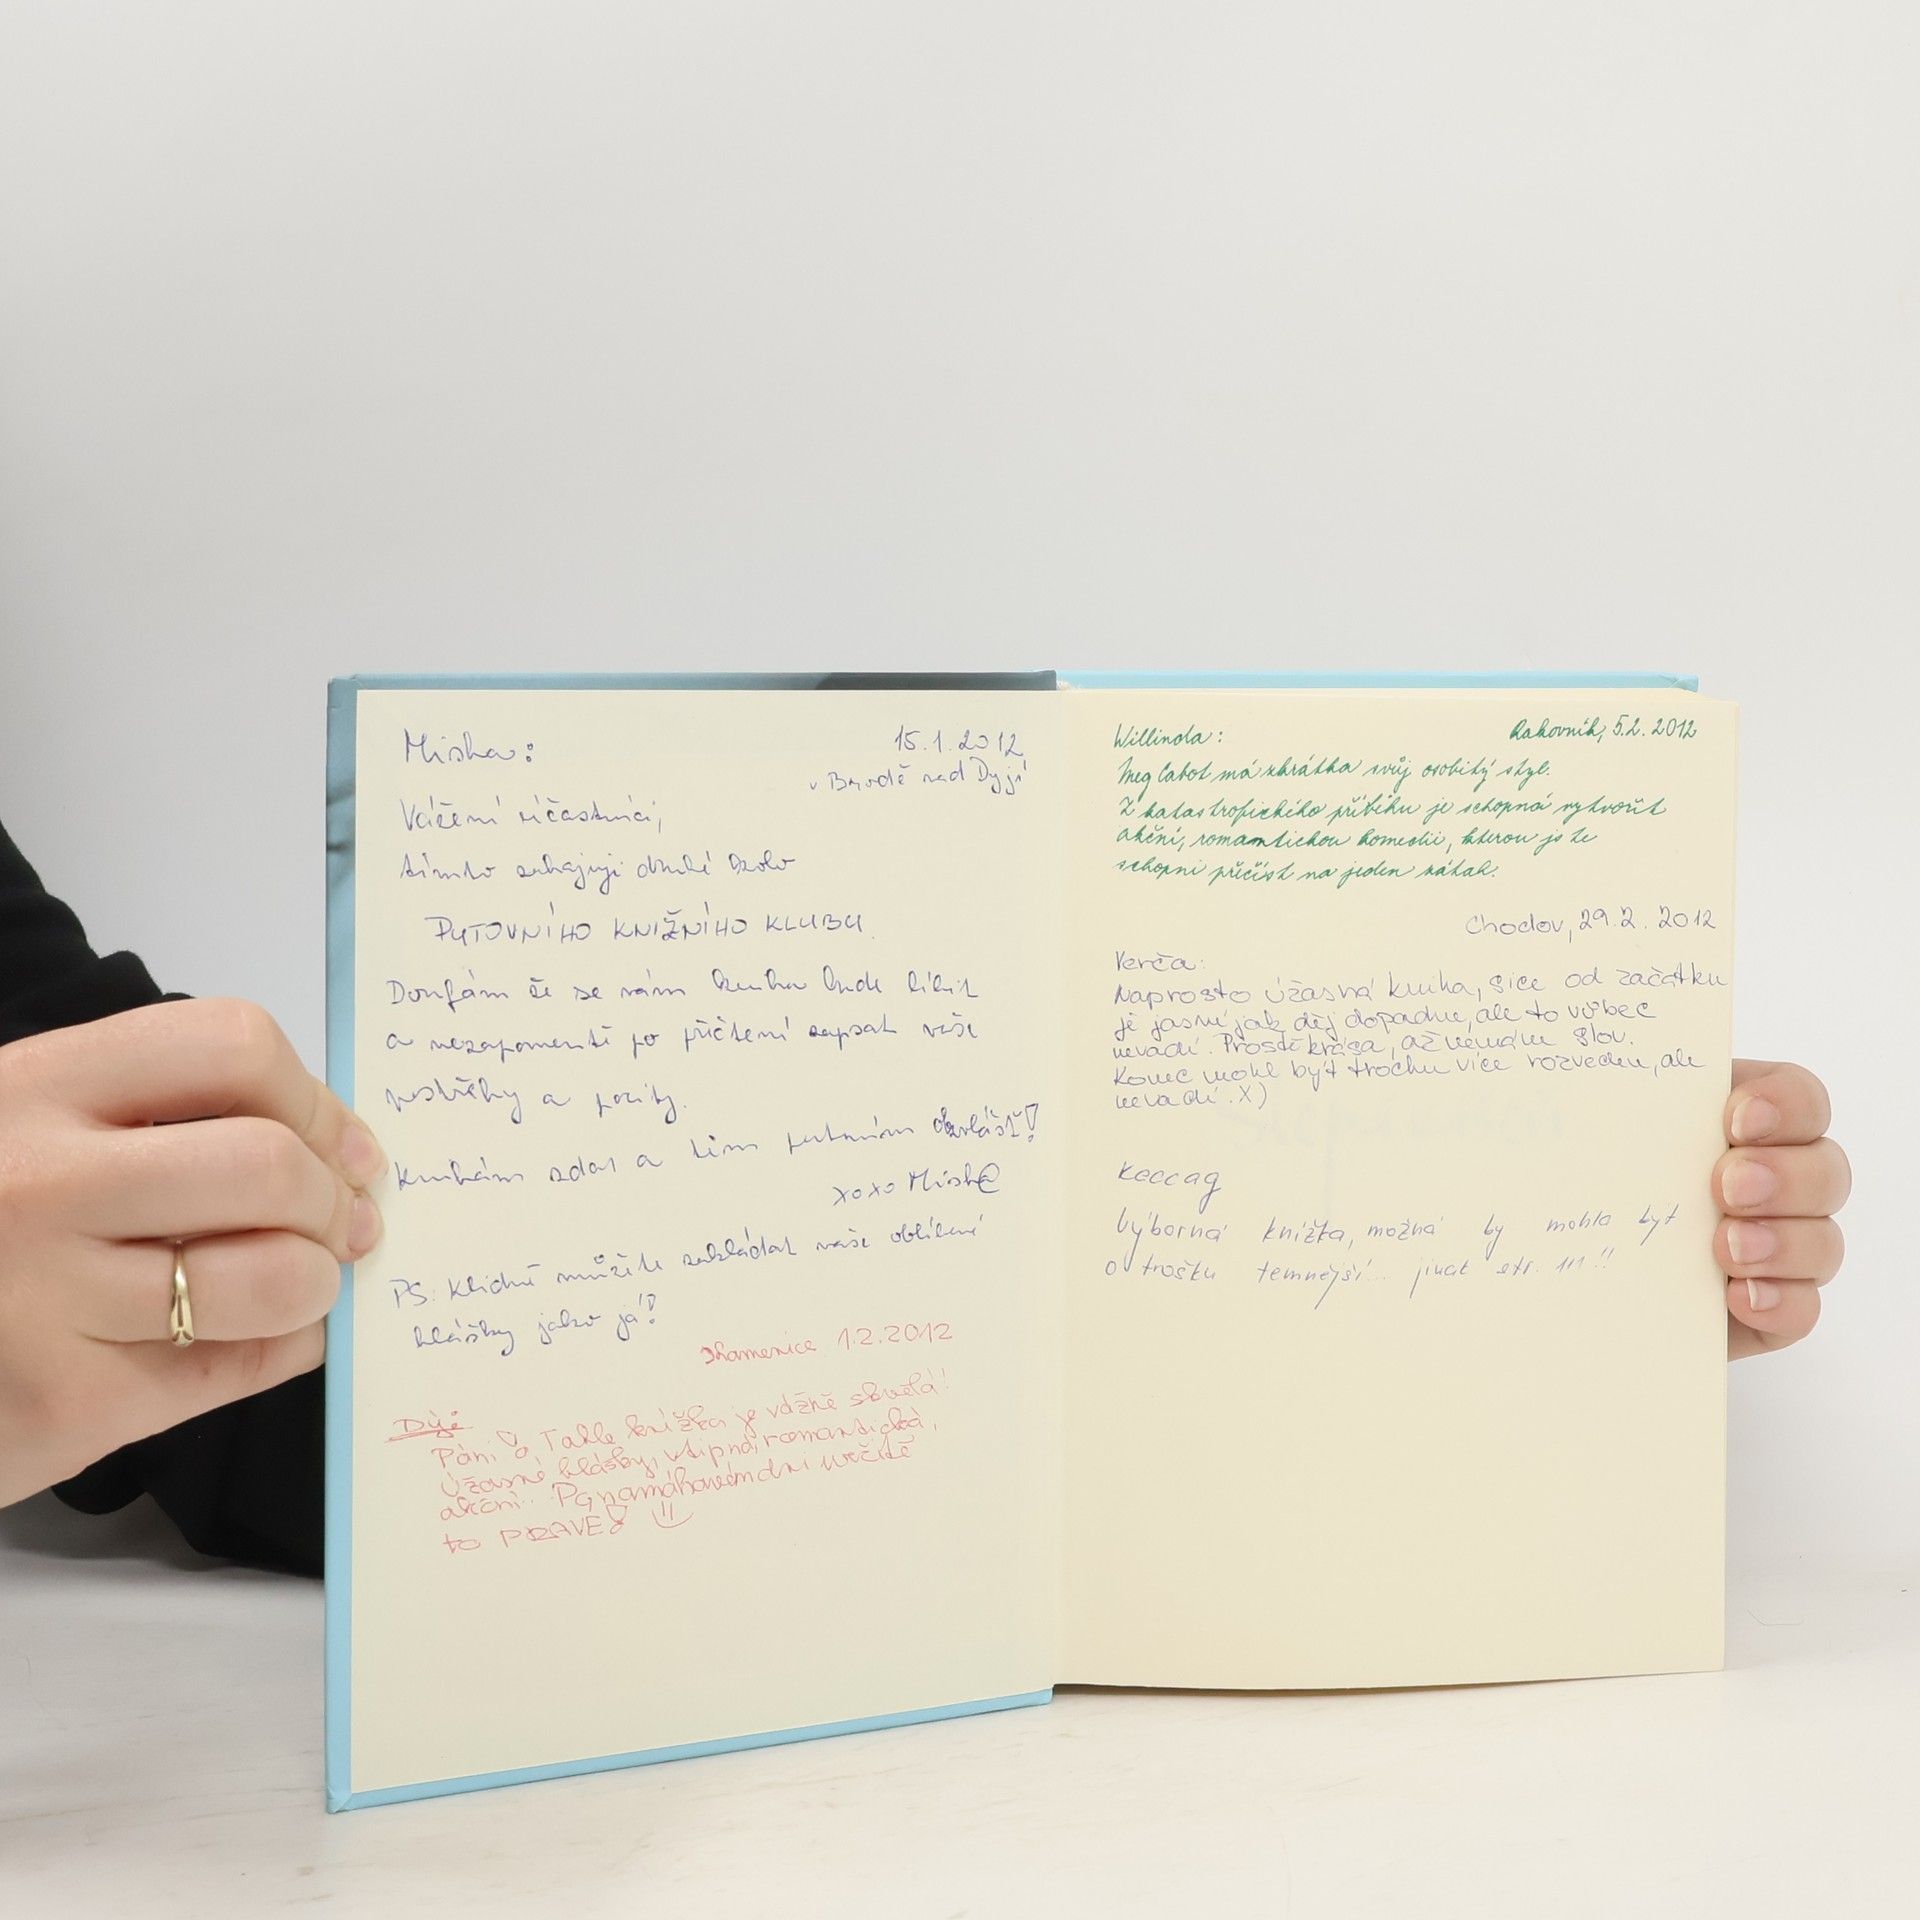 Misha:
15.1.2012
v Brodě nad Dyjí
Vážení účastníci,
tímto zahajuji druhé kolo
PUTOVNÍHO KNIŽNÍHO KLUBU.
Doufám že se vám kniha bude líbit
a nezapomeňte po přečtení zapsat vaše
postřehy a pocity.
Knihám zdar a těm putovním obzvlášť!
xoxo Mish@
PS: Klidně můžete zakládat vaše oblíbené
hlášky jako já!
Kamenice 1.2.2012
Páni! Tahle knížka je vážně skvělá!
Úžasné hlášky, vtipná, romantická,
akční.. Po namáhavém dni určitě
to PRAVÉ!
Willinola:
Rakovník, 5.2.2012
Meg Cabot má zkrátka svůj osobitý styl.
Z katastrofického příběhu je schopná vytvořit
akční, romantickou komedii, kterou jste
schopni přečíst na jeden zátah.
Chodov, 29.2.2012
Verča:
Naprosto úžasná kniha, sice od začátku
je jasné jak děj dopadne, ale to vůbec
nevadí. Prostě krása, až nemám slov.
Konec mohl být trochu více rozveden, ale
nevadí. X)
Keccag
Výborná knížka, možná by mohla být
o trošku temnější... jinak str. 111!!